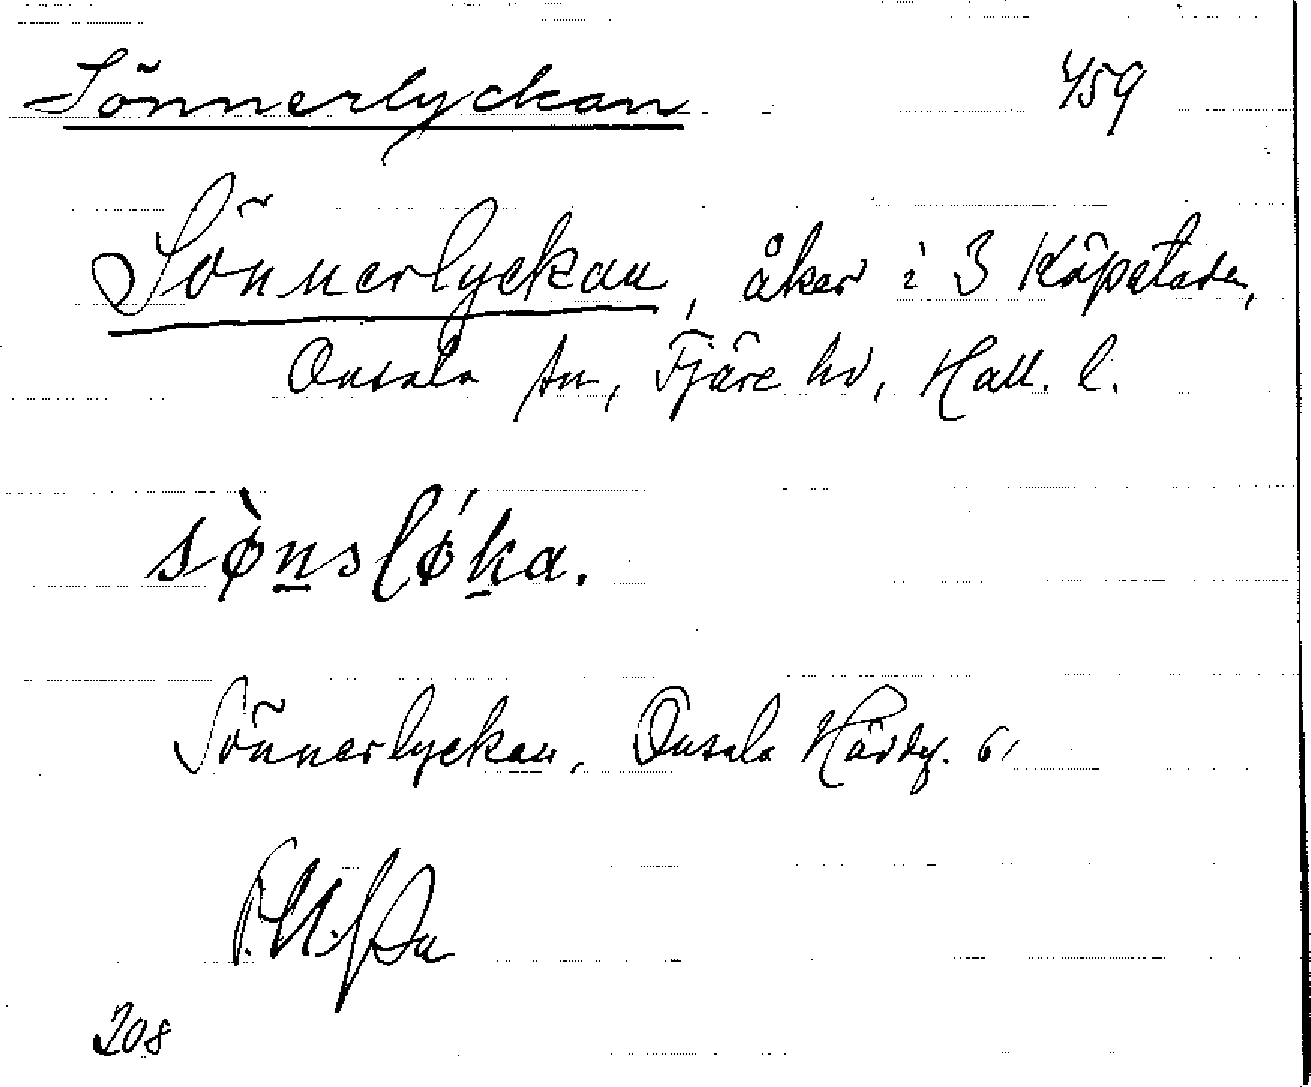 Sönnerlyckan 459
Sönnerlyckan, åker i 3 Köpstaden,
Onsala sn, Fjäre hd, Hall. l.
sø̀nslǿka.
Sönnerlyckan, Onsala Hördg. 6,
208